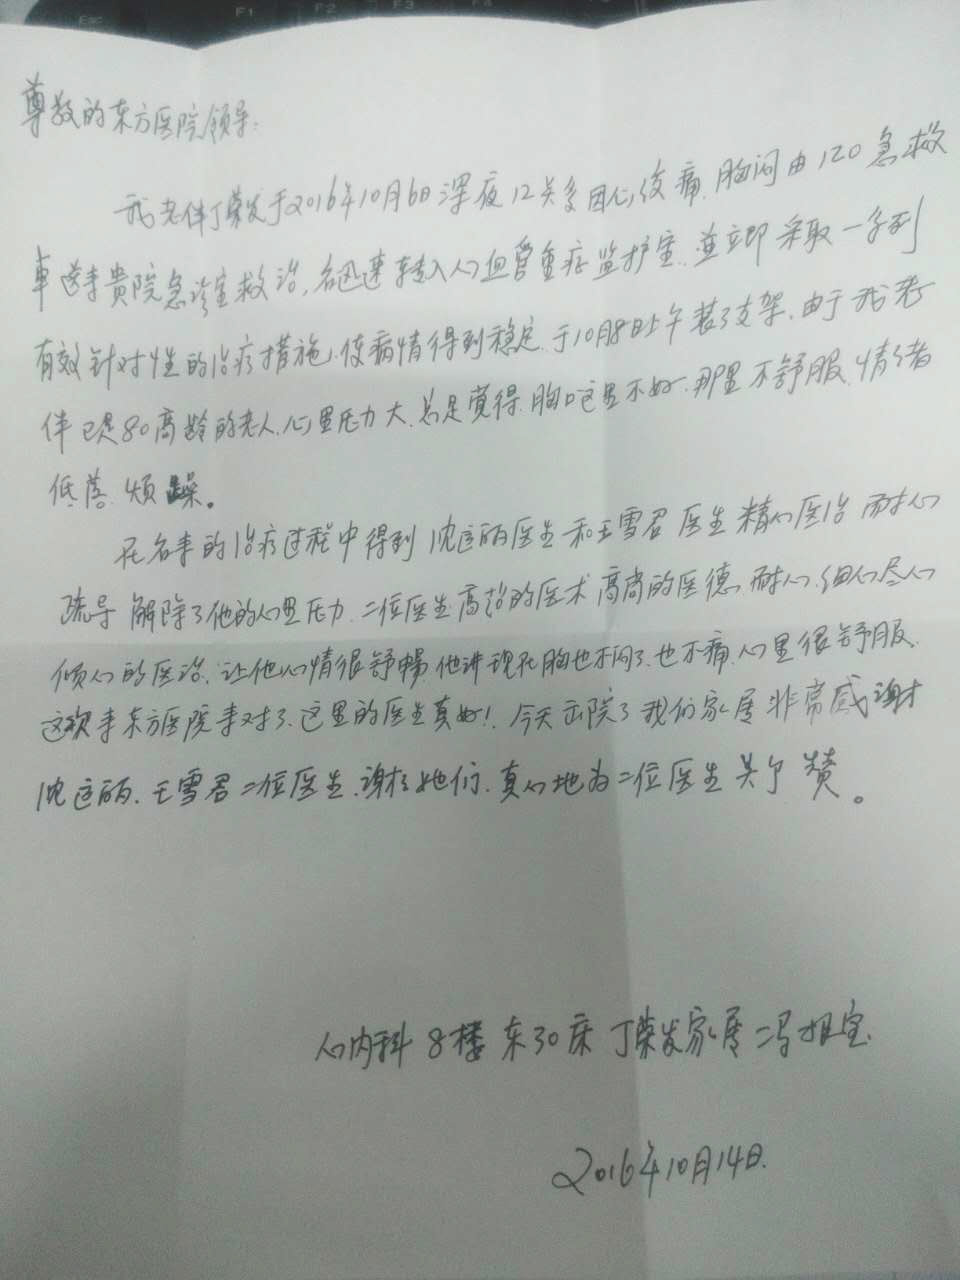 尊敬的东方医院领导:
我老伴丁荣发于2016年10月6日深夜12点多因心绞痛、胸闷由120急救
车送来贵院急诊室救治,后迅速转入心血管重症监护室,並立即采取一系列
有效针对性的治疗措施,使病情得到稳定,于10月8日上午装了支架,由于我老
伴已是80高龄的老人,心里压力大,总是觉得,胸口这里不好,那里不舒服,情绪
低落、烦躁。
在后来的治疗过程中得到沈运丽医生和王雪君医生精心医治 耐心
疏导 解除了他的心里压力,二位医生高超的医术 高尚的医德,耐心、细心、尽心
倾心的医治,让他心情很舒暢,他讲现在胸也不闷了,也不痛,心里很舒服,
这次来东方医院来对了,这里的医生真好!今天出院了我们家属非常感谢
沈运丽、王雪君二位医生,谢谢她们,真心地为二位医生点个赞。
心内科8楼东30床 丁荣发家属 冯根宝
2016年10月14日.